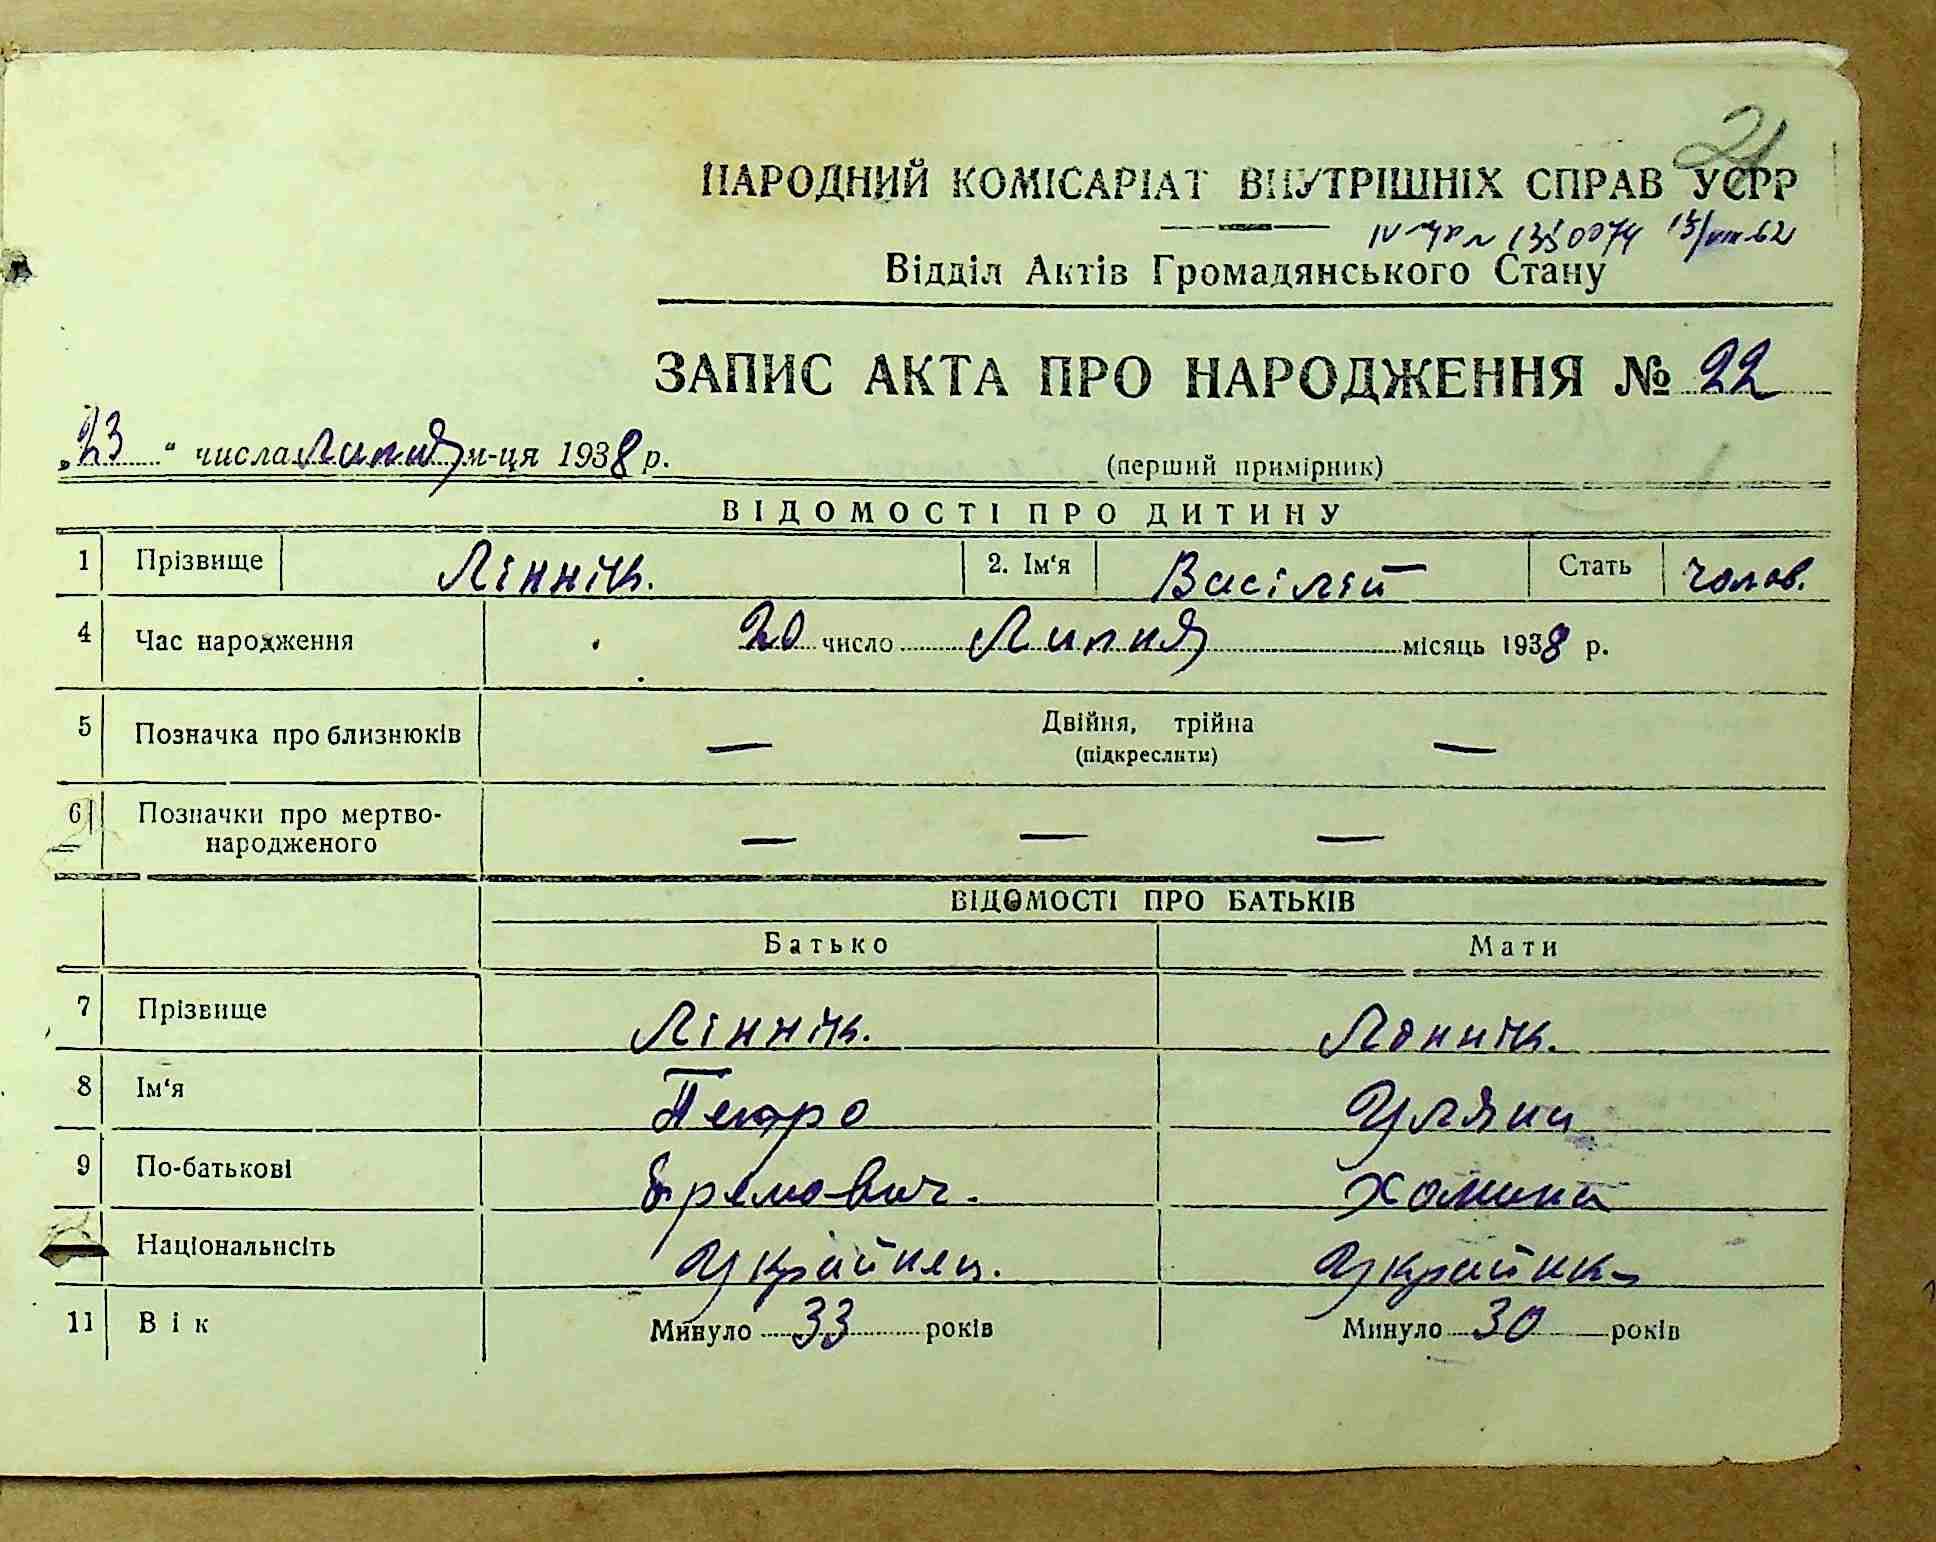 21
НАРОДНИЙ КОМІСАРІАТ ВНУТРІШНІХ СПРАВ УСРР
№ 1350074 15/VIII-62
Відділ Актів Громадянського Стану
ЗАПИС АКТА ПРО НАРОДЖЕННЯ № 22
„23" числа Липня м-ця 1938 р. (перший примірник)
ВІДОМОСТІ ПРО ДИТИНУ
1 Прізвище Ліннік. 2. Ім'я Васілій Стать чолов.
4 Час народження 20 число Липня місяць 1938 р.
5 Позначка про близнюків — Двійня, трійна —
(підкреслити)
6 Позначки про мертво-
народженого — — —
ВІДОМОСТІ ПРО БАТЬКІВ
Батько Мати
7 Прізвище Ліннік. Ліннік.
8 Ім'я Петро Уляна
9 По-батькові Єремович. Хомина
Національність Украйнец. Украйнка
11 Вік Минуло 33 років Минуло 30 років